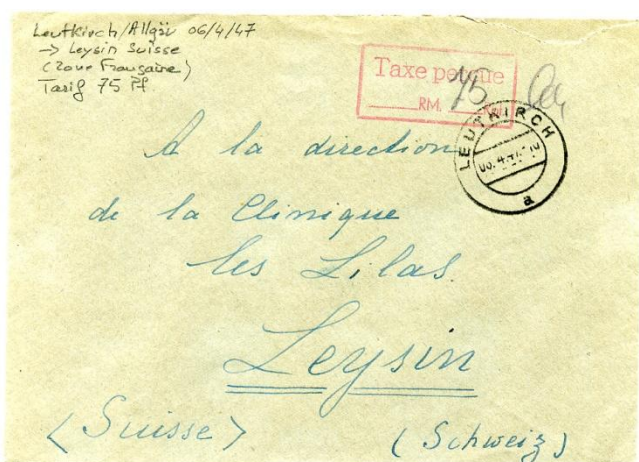 Leutkirch/Allgäu 06/4/47
→ Leysin Suisse
(Zone Française)
Tarif 75 Pf.
Taxe perçue
75
RM.
LEUTKIRCH
a
A la direction
de la Clinique
les Lilas.
Leysin
(Suisse)
(Schweiz)